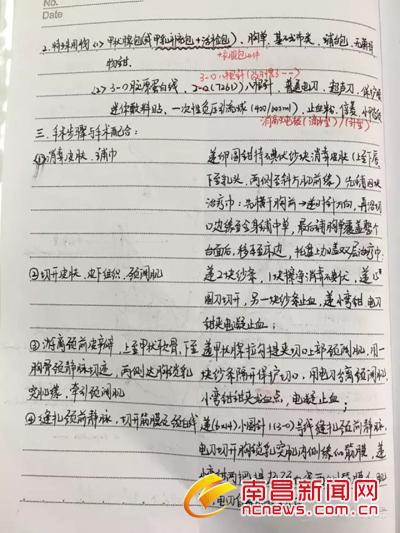 No.
Date
2. 特殊用物 (1) 甲状腺包(或甲乳包+活检包)、胸单、基础布类、辅包、无菌持
物钳
3-0
(2) 3-0胶原蛋白线、2-0(T26D)八根针、普通电刀、超声刀、保护套
迷你敷料贴、一次性负压引流球(400/200ml)、止血纱、
三. 手术步骤与手术配合:
①消毒皮肤、铺巾
递卵圆钳持碘伏纱块消毒皮肤(上至下唇,
下至乳头,两侧至斜方肌前缘)先铺四块
治疗巾:先铺于胸前→逆时针方向,再沿切
口边缘至全身铺中单,最后铺胸单覆盖整个
台面后,移手至床边,托盘上加盖双层治疗巾
②切开皮肤、皮下组织、颈阔肌
递2块纱条,1块擦净消毒碘伏,递15#
圆刀切开,另一块纱条止血,递小弯钳电刀
钳夹电凝止血;
③游离颈前皮瓣,上至甲状软骨,下至
胸骨颈静脉切迹,两侧达胸锁乳
突肌缘,牵引颈阔肌
递甲状腺拉勾提夹切口上部颈阔肌,用一
纱条隔开保护切口,用电刀分离颈阔肌
小弯钳钳夹出血点,电凝止血;
④缝扎颈前静脉,切开筋膜及颈白线
递(6x14)小圆针1(3-0)号线缝扎颈前静脉,
电刀切开胸锁乳突肌内侧缘的筋膜,递
南昌新闻网
ncnews.com.cn